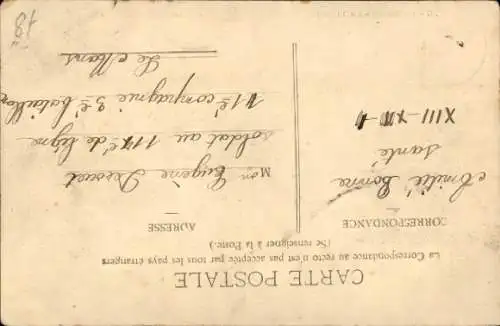 CARTE POSTALE
La Correspondance au recto n'est pas acceptée par tous les pays étrangers
(Se renseigner à la Poste.)
CORRESPONDANCE
Amitié Bonne
santé
XIII-XII-11
ADRESSE
Mon Eugène
soldat au 117e de ligne
11e compagnie 3e bataillon
Le Mans